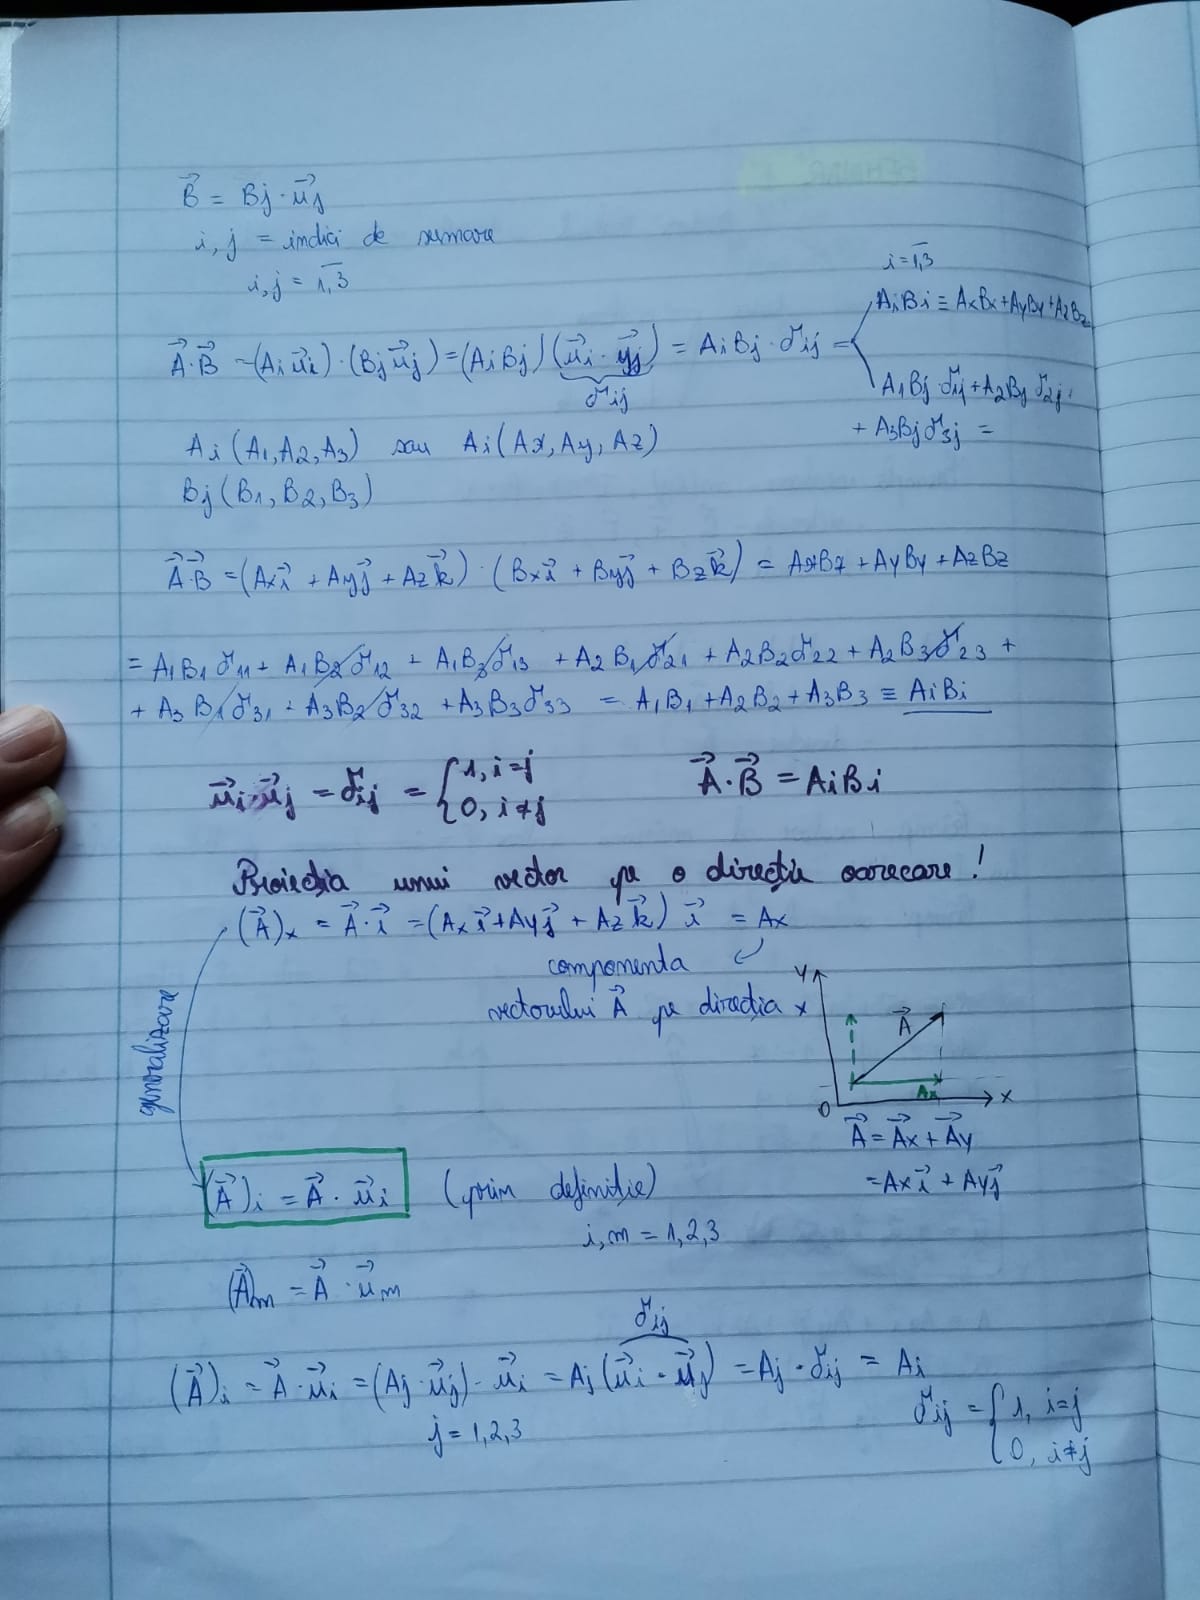 B⃗ = Bj · u⃗j
i, j = indici de sumare
i, j = 1,3̅
i = 1,3̅
AiBi ≡ AxBx + AyBy + AzBz
A⃗·B⃗ = (Ai u⃗i) · (Bj u⃗j) = (AiBj) (u⃗i · u⃗j) = AiBj · δij =
δij
A1Bj δ1j + A2Bj δ2j +
+ A3Bj δ3j =
Ai (A1, A2, A3) sau Ai (Ax, Ay, Az)
Bj (B1, B2, B3)
A⃗·B⃗ = (Ax i⃗ + Ay j⃗ + Az k⃗) · (Bx i⃗ + By j⃗ + Bz k⃗) = AxBx + AyBy + AzBz
= A1B1 δ11 + A1B2 δ12 + A1B3 δ13 + A2B1 δ21 + A2B2 δ22 + A2B3 δ23 +
+ A3B1 δ31 + A3B2 δ32 + A3B3 δ33 = A1B1 + A2B2 + A3B3 ≡ AiBi
u⃗i · u⃗j = δij = { 1, i=j
0, i≠j
A⃗·B⃗ = AiBi
Proiecția unui vector pe o direcție oarecare!
(A⃗)x = A⃗ · i⃗ = (Ax i⃗ + Ay j⃗ + Az k⃗) i⃗ = Ax
componenta
vectorului A⃗ pe direcția x
generalizare
y
A⃗
Ax
O
x
A⃗ = A⃗x + A⃗y
= Ax i⃗ + Ay j⃗
(A⃗)i = A⃗ · u⃗i (prin definiție)
i, m = 1,2,3
(A⃗)m = A⃗ · u⃗m
δij
(A⃗)i = A⃗ · u⃗i = (Aj · u⃗j) · u⃗i = Aj (u⃗i · u⃗j) = Aj · δij = Ai
j = 1,2,3
δij = { 1, i=j
0, i≠j